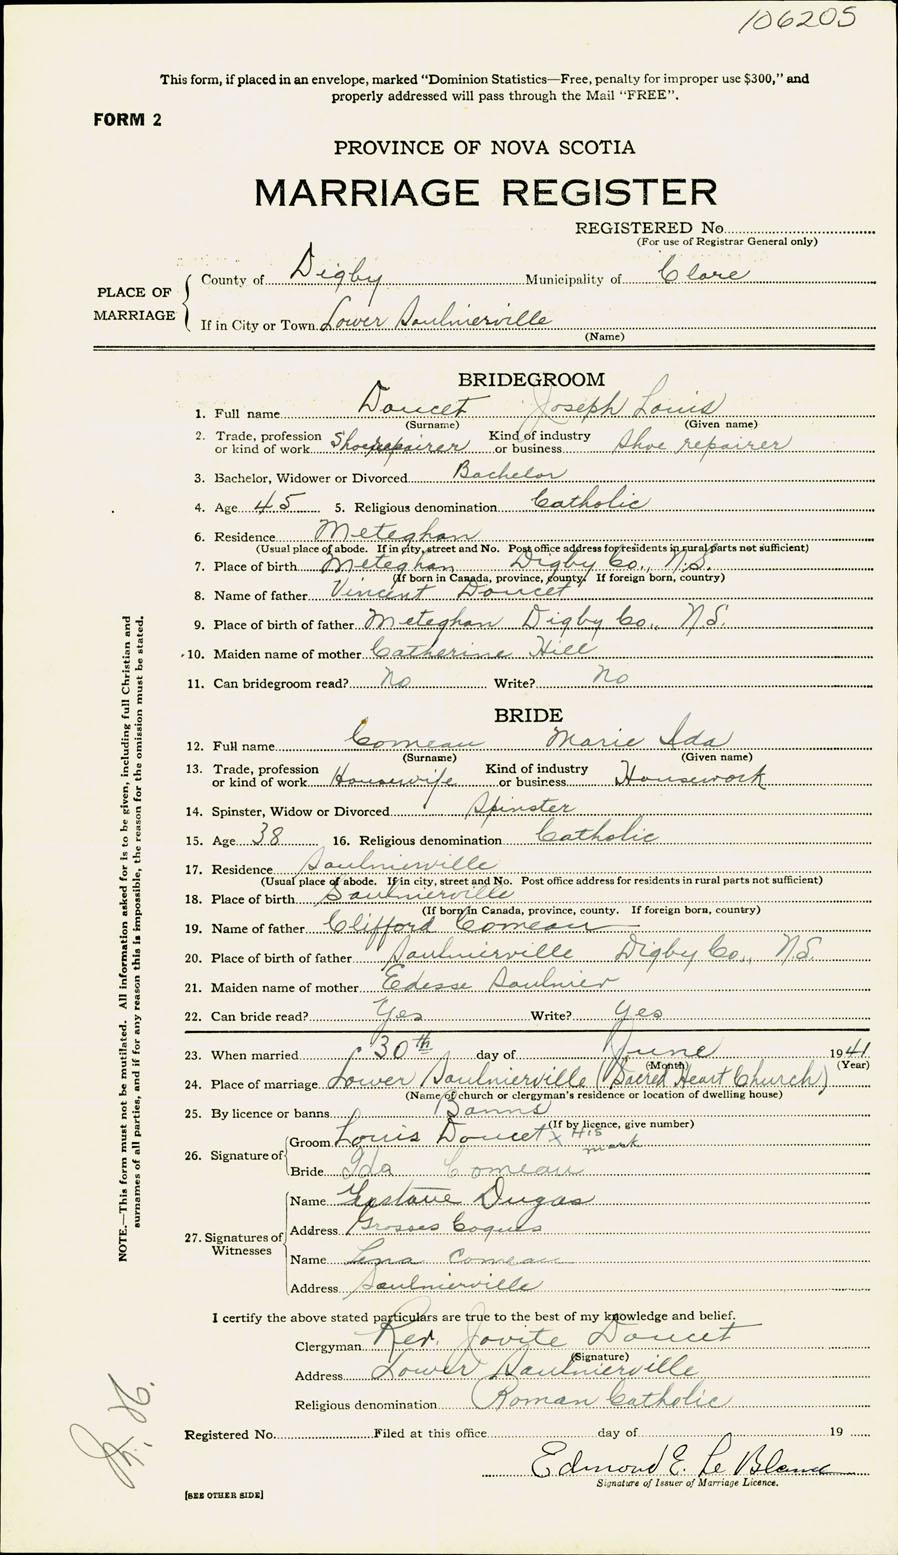 106205
This form, if placed in an envelope, marked "Dominion Statistics—Free, penalty for improper use $300," and
properly addressed will pass through the Mail "FREE".
FORM 2
PROVINCE OF NOVA SCOTIA
MARRIAGE REGISTER
REGISTERED No.
(For use of Registrar General only)
PLACE OF MARRIAGE
County of Digby Municipality of Clare
If in City or Town Lower Saulnierville
(Name)
BRIDEGROOM
1. Full name Doucet Joseph Louis
(Surname) (Given name)
2. Trade, profession or kind of work Shoe repairer Kind of industry or business Shoe repairer
3. Bachelor, Widower or Divorced Bachelor
4. Age 45 5. Religious denomination Catholic
6. Residence Meteghan
(Usual place of abode. If in city, street and No. Post office address for residents in rural parts not sufficient)
7. Place of birth Meteghan Digby Co., N.S.
(If born in Canada, province, county. If foreign born, country)
8. Name of father Vincent Doucet
9. Place of birth of father Meteghan Digby Co., N.S.
10. Maiden name of mother Catherine Hill
11. Can bridegroom read? No Write? No
BRIDE
12. Full name Comeau Marie Ida
(Surname) (Given name)
13. Trade, profession or kind of work Housewife Kind of industry or business Housework
14. Spinster, Widow or Divorced Spinster
15. Age 38 16. Religious denomination Catholic
17. Residence Saulnierville
(Usual place of abode. If in city, street and No. Post office address for residents in rural parts not sufficient)
18. Place of birth Saulnierville
(If born in Canada, province, county. If foreign born, country)
19. Name of father Clifford Comeau
20. Place of birth of father Saulnierville Digby Co., N.S.
21. Maiden name of mother Edesse Saulnier
22. Can bride read? Yes Write? Yes
23. When married 30th day of June 1941
(Month) (Year)
24. Place of marriage Lower Saulnierville (Sacred Heart Church)
(Name of church or clergyman's residence or location of dwelling house)
25. By licence or banns Banns
(If by licence, give number)
26. Signature of Groom Louis Doucet X His mark
Bride Ida Comeau
27. Signatures of Witnesses
Name Gustave Dugas
Address Grosses Coques
Name Lena Comeau
Address Saulnierville
I certify the above stated particulars are true to the best of my knowledge and belief.
Clergyman Rev. Jovite Doucet
(Signature)
Address Lower Saulnierville
Religious denomination Roman Catholic
Registered No. Filed at this office day of 19
Edmond E. Le Blanc
Signature of Issuer of Marriage Licence.
[SEE OTHER SIDE]
NOTE.—This form must not be mutilated. All information asked for is to be given, including full Christian and
surnames of all parties, and if for any reason this is impossible, the reason for the omission must be stated.